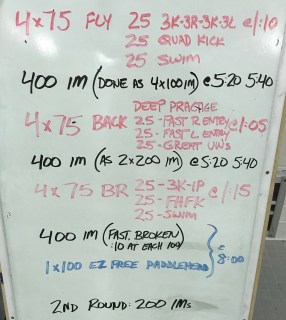 4x75 FLY 25 3K-3R-3K-3L @1:10
25 QUAD KICK
25 SWIM
400 IM (DONE AS 4x100 IM) @ 5:20 5:40
DEEP PRACTICE
4x75 BACK 25-FAST R ENTRY @1:05
25-FAST L ENTRY
25-GREAT UWS
400 IM (AS 2x200 IM) @ 5:20 5:40
4x75 BR 25-3K-1P @1:15
25-FHFK
25-SWIM
400 IM (FAST, BROKEN)
:10 AT EACH 100
@ 8:00
1x100 EZ FREE
2ND ROUND: 200 IMs